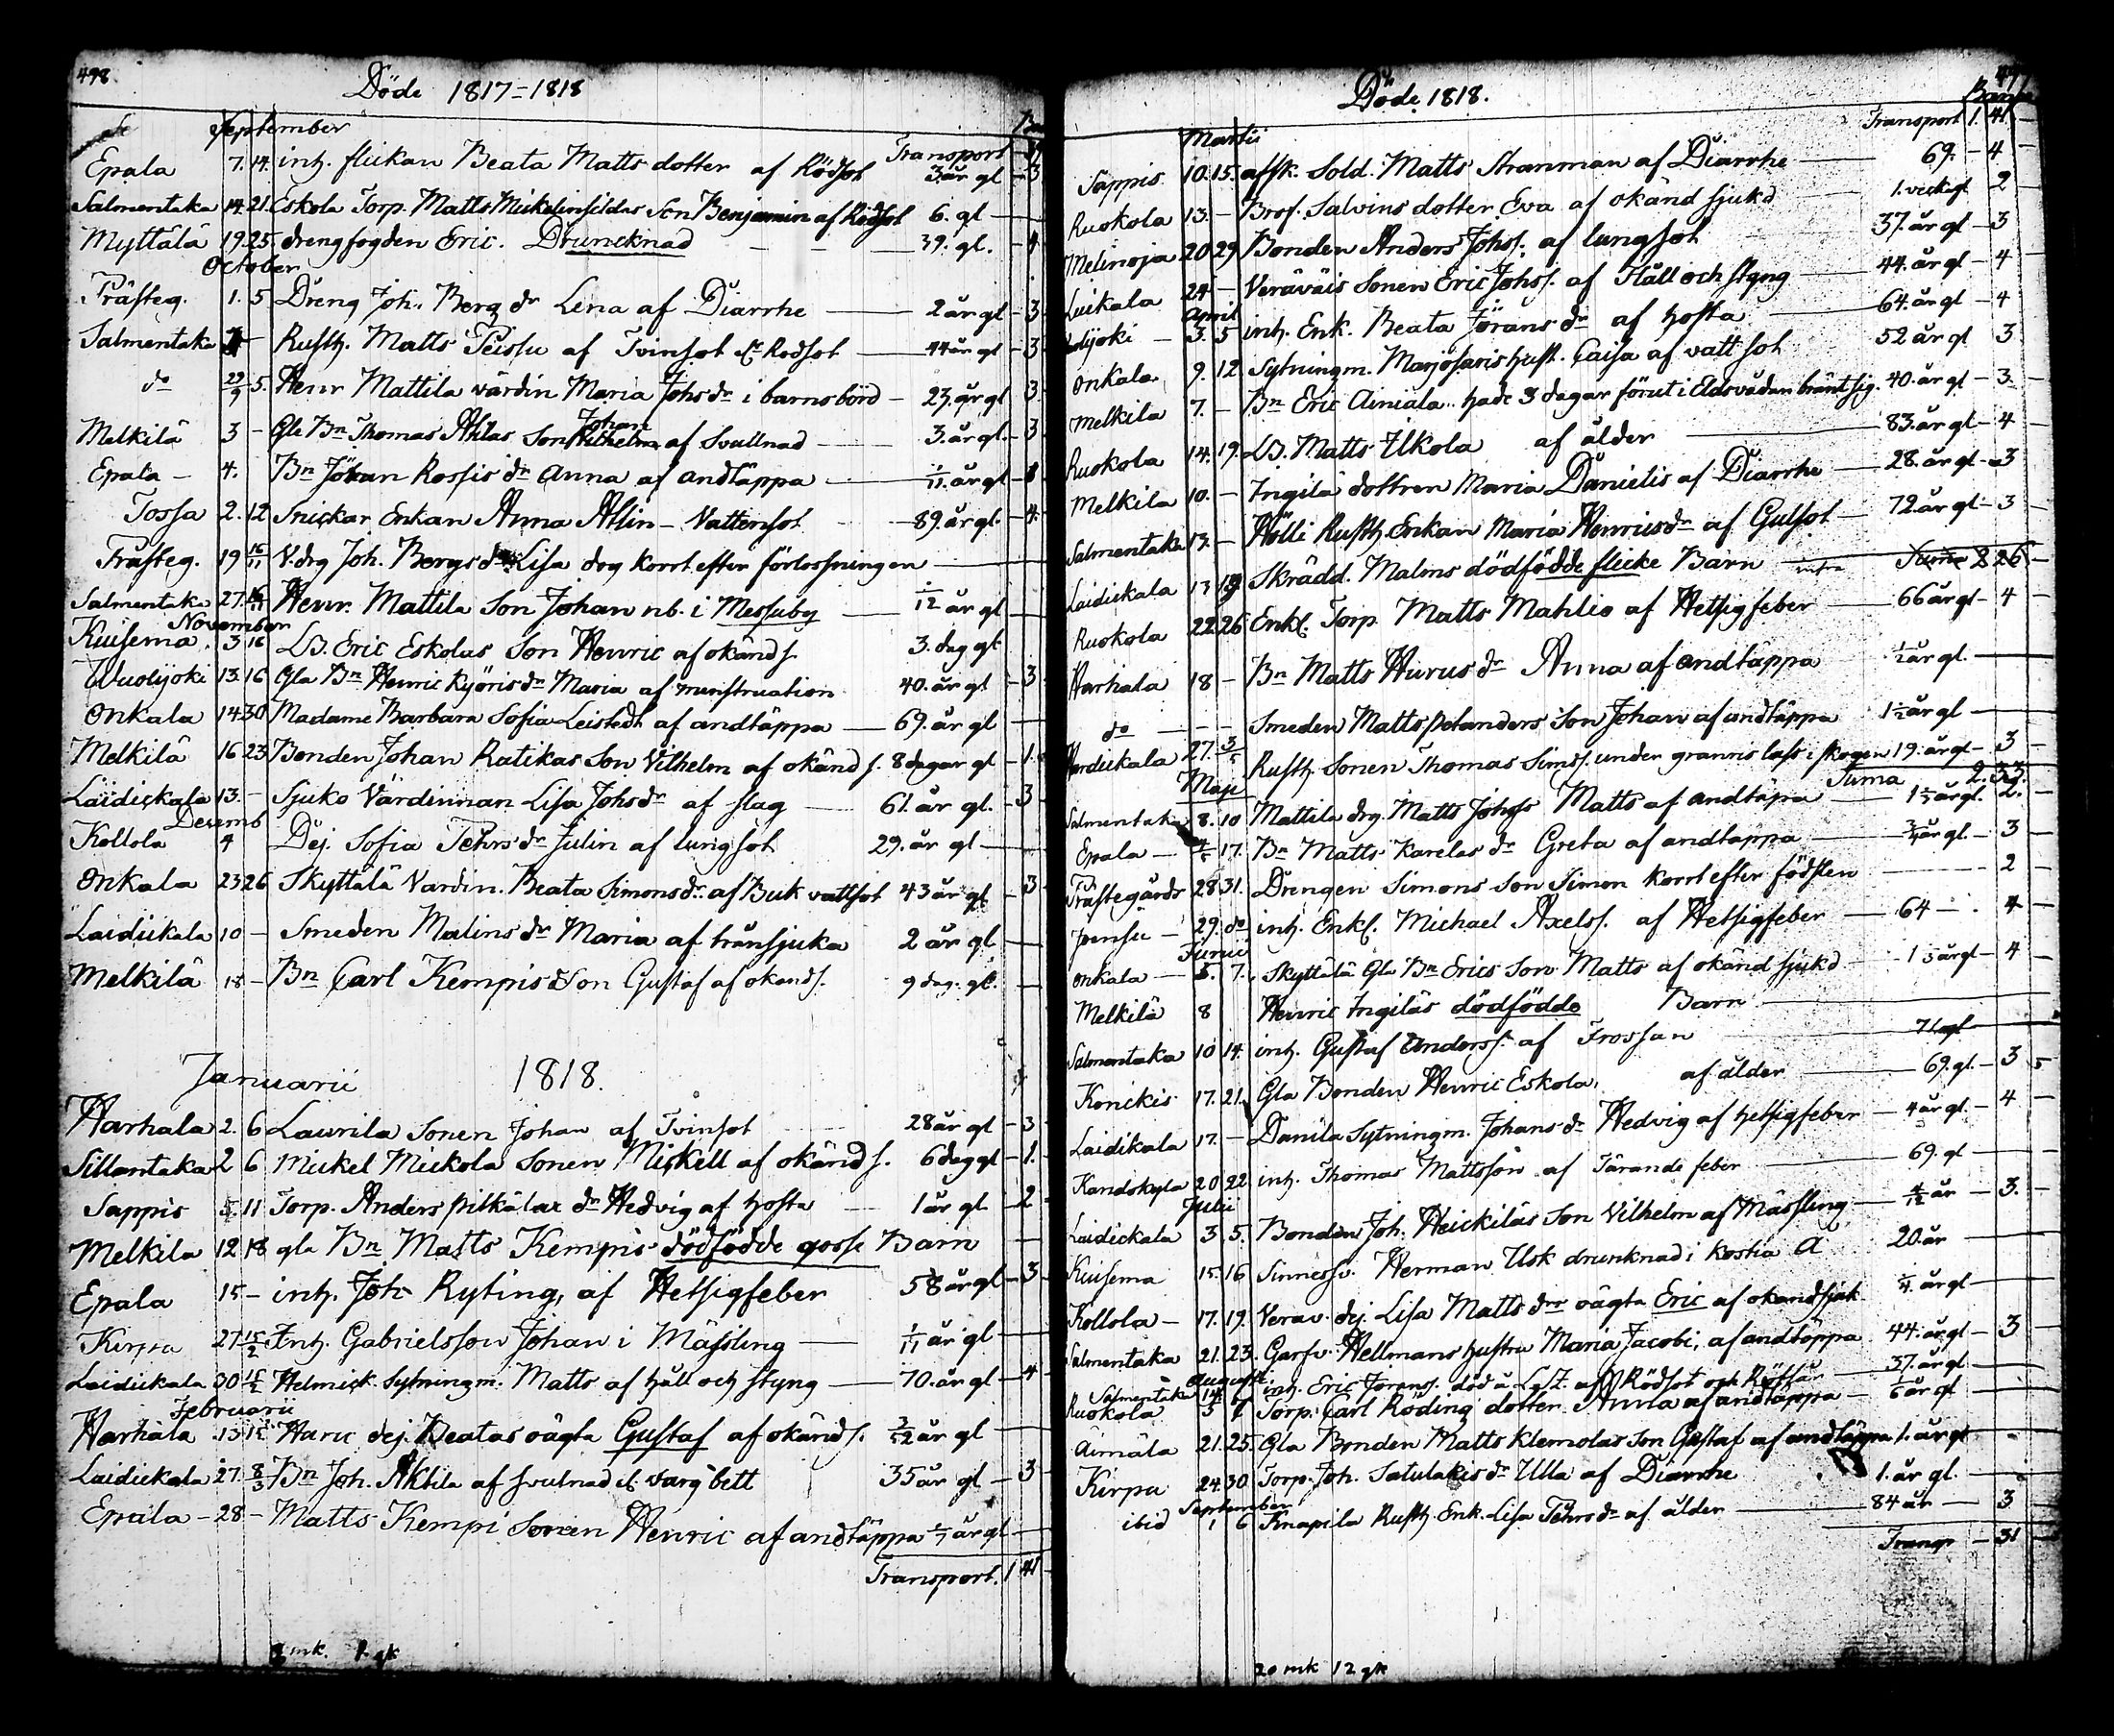 498
Döde 1817-1818
September
Transport
Epala 7. 14. inh. flickan Beata Matts dotter af Rödsot 3. år gl - 3
Salmentaka 14. 21. Eskola Torp. Matts Son Benjamin af Rödsot 6. gl
Myttälä 19 25. drengfogden Eric. Druncknad 39. gl. - 4
October
Prästeg. 1. 5 Dreng Joh. Berg dr Lena af Diarrhe 2 år gl - 3
Salmentaka - Rusth. Matts Peissu af Tvinsot & Rodsot 44 år gl - 3
do 29/9 5. Henr Mattila värdin Maria Johsdr i barnsbörd - 23. år gl 3
Melkilä 3 - Gla Bn Thomas Ahlas Son Johan Wilhelm af Svullnad 3. år gl. - 3
Epala - 4. Bn Johan Rossis dr Anna af andtäppa 1/11. år gl - 1
Tossa 2. 12 Snickar Enkan Anna Ahlin - Vattensot 89. år gl. - 4.
Prästeg. 19 16/11 V. drg Joh. Bergs dr Lisa dog korrt efter förlossningen
Salmentaka 27. 16/11 Henr. Mattila Son Johan nb. i Messuby 1/12 år gl
November
Kuisema. 3 16 Ld. Eric Eskolas Son Henric af okänd s. 3. dag gl
Wuolijoki 13. 16 Gla Bn Henric Kyöris dr Maria af menstruation 40. år gl - 3
Onkala 14 30 Madame Barbara Sofia Leistedt af andtäppa 69. år gl
Melkilä 16 23 Bonden Johan Ratikas Son Vilhelm af okänd s. 8 dagar gl - 1.
Laidickala 13. - Sjuko Värdinnan Lisa Johsdr af slag 61. år gl. - 3
Decemb
Kollola 4 Dej. Sofia Tehrs dr Julin af lungsot 29. år gl
Onkala 23 26 Skyttälä Värdin. Beata Simonsdr. af Buk vattsot 43 år gl - 3
Laidickala 10 - Smeden Malins dr Maria af trånsjuka 2 år gl
Melkilä 18 - Bn Carl Kempis Son Gustaf af okänd s. 9 dag. gl.
Januarii 1818.
Harhala 2. 6 Laurila Sonen Johan af Tvinsot 28 år gl - 3
Sillantaka 2 6 Mickel Mickola Sonen Mickell af okänd s. 6 dag gl - 1.
Sappis 5. 11 Torp. Anders Pilkälax dr Hedvig af hosta 1 år gl - 2
Melkila 12 18 gla Bn Matts Kempis dödfödde gosse Barn
Epala 15 - inh. Joh Ryting, af Hetsigfeber 58 år gl - 3
Kirpa 27 15/2 Inh. Gabrielsson Johan i Mässling 1/11 år gl
Laidickala 30 15/2 Helmick. Sytningm. Matts af håll och styng 70. år gl - 4
Februarii
Harhala 13 15 Haru dej. Beatas oägta Gustaf af okänd s. år gl
Laidickala 27. 8/3 Bn Joh. Aktila af svulnad af varg bett 35 år gl - 3
Epala - 28 - Matts Kempi Sonen Henric af andtäppa år gl
Transport. 1 41
mk. gk
Döde 1818.
Transport 1. 41 -
Martii
Sappis. 10. 15. afsk. Sold. Matts Stranman af Diarrhe 69. - 4
Ruokola 13. - Brof. Salvins dotter Eva af okänd sjukd 1. vecka gl - 2
Melinoja 20 29 Bonden Anders Johss. af lungsot 37. år gl - 3
Luikala 24 - Veräväis Sonen Eric Johss. af Håll och styng 44. år gl - 4
April
3. 5 inh. Enk. Beata Jöransdr af hosta 64. år gl - 4
Onkala. 9. 12 Sytningm. Marjosaris hust. Caisa af vattsot 52 år gl 3
Melkila 7. - Bn Eric Ainiala.. hade 3 dagar förut i Eldsvådan bränt sig. 40. år gl - 3.
Ruokola 14. 19. Ld. Matts Ilkola af ålder 83. år gl - 4
Melkila 10. - Ingilä dottren Maria Danielis af Diarrhe 28. år gl - 3
Salmentaka 13. - Hölli Rusth. Enkan Maria Henricsdr af Gulsot 72 år gl - 3
Laidickala 13 19 Skrädd. Malms dödfödde flicke Barn Suma 2 26
Ruokola 22 26 Enkl. Torp Matts Mahlio af Hetsigfeber 66 år gl - 4
Harhala 18 - Bn Matts Hurus dr Anna af andtäppa år gl.
do - - Smeden Matts Petanders Son Johan af andtäppa 1 1/2 år gl
27. 3/5 Rusth. Sonen Thomas Simss. under grannis lass i skogen 19. år gl - 3
Suma 2. 33.
Maji
Salmentaka 8. 10 Mattila drg. Matts Johss Matts af andtäpa år gl. 2.
Epala - 17. Bn Matts Karelas dr Greta af andtäppa 3/4 år gl. - 3
Prästegårds 28 31. Drengen Simons Son Simon korrt efter födslen 2
29. do inh. Enkl. Michael Axelss. af Hetsigfeber 64 - 4
Junii
Onkala 5. 7. Skyttälä Gla Bn Erics Son Matts af okänd sjukd 1 år gl - 4
Melkilä 8 Henric Ingilas dödfödda Barn
Salmentaka 10 14. inh. Gustaf Anderss. af Frossan 71 gl
Konickis 17. 21. Gla Bonden Henric Eskola, af ålder 69. gl. - 3
Laidikala 17. - Danila Sytningm. Johans dr Hedvig af hetsigfeber 4 år gl. - 4
20 22. inh. Thomas Mattsson af Tärande feber 69. gl
Julii
Laidickala 3 5. Bonden Joh. Heickiläs Son Vilhelm af Mässling år - 3.
Kuisema 15. 16 Sinnessv. Herman Usk drunknad i Kostia Å 20. år
Kollola - 17. 19. Verav. dej. Lisa Mattsdrs oägta Eric af okänd sjuk. år gl
Salmentaka 21. 23. Garfv. Hellmans hustru Maria Jacobi, af andtäppa 44. år gl - 3
Augusti
Salmentaka inh. Eric Jöranss. död å af Rödsot och Rötfår 37. år gl
Ruokola 3 Torp. Carl Röding dotter Anna af andtäppa år gl
Aimala 21. 25. Gla Bonden Matts Klemolas Son Gustaf af andtäppa 1. år gl
Kirpa 24 30 Torp. Joh. Satulakis dr Ulla af Diarrhe 1. år gl.
September
ibid 1 6 Knapila Rusth. Enk. Lisa Tehrsdr af ålder 84 år - 3
Transp - 31
20 mk 12 gk